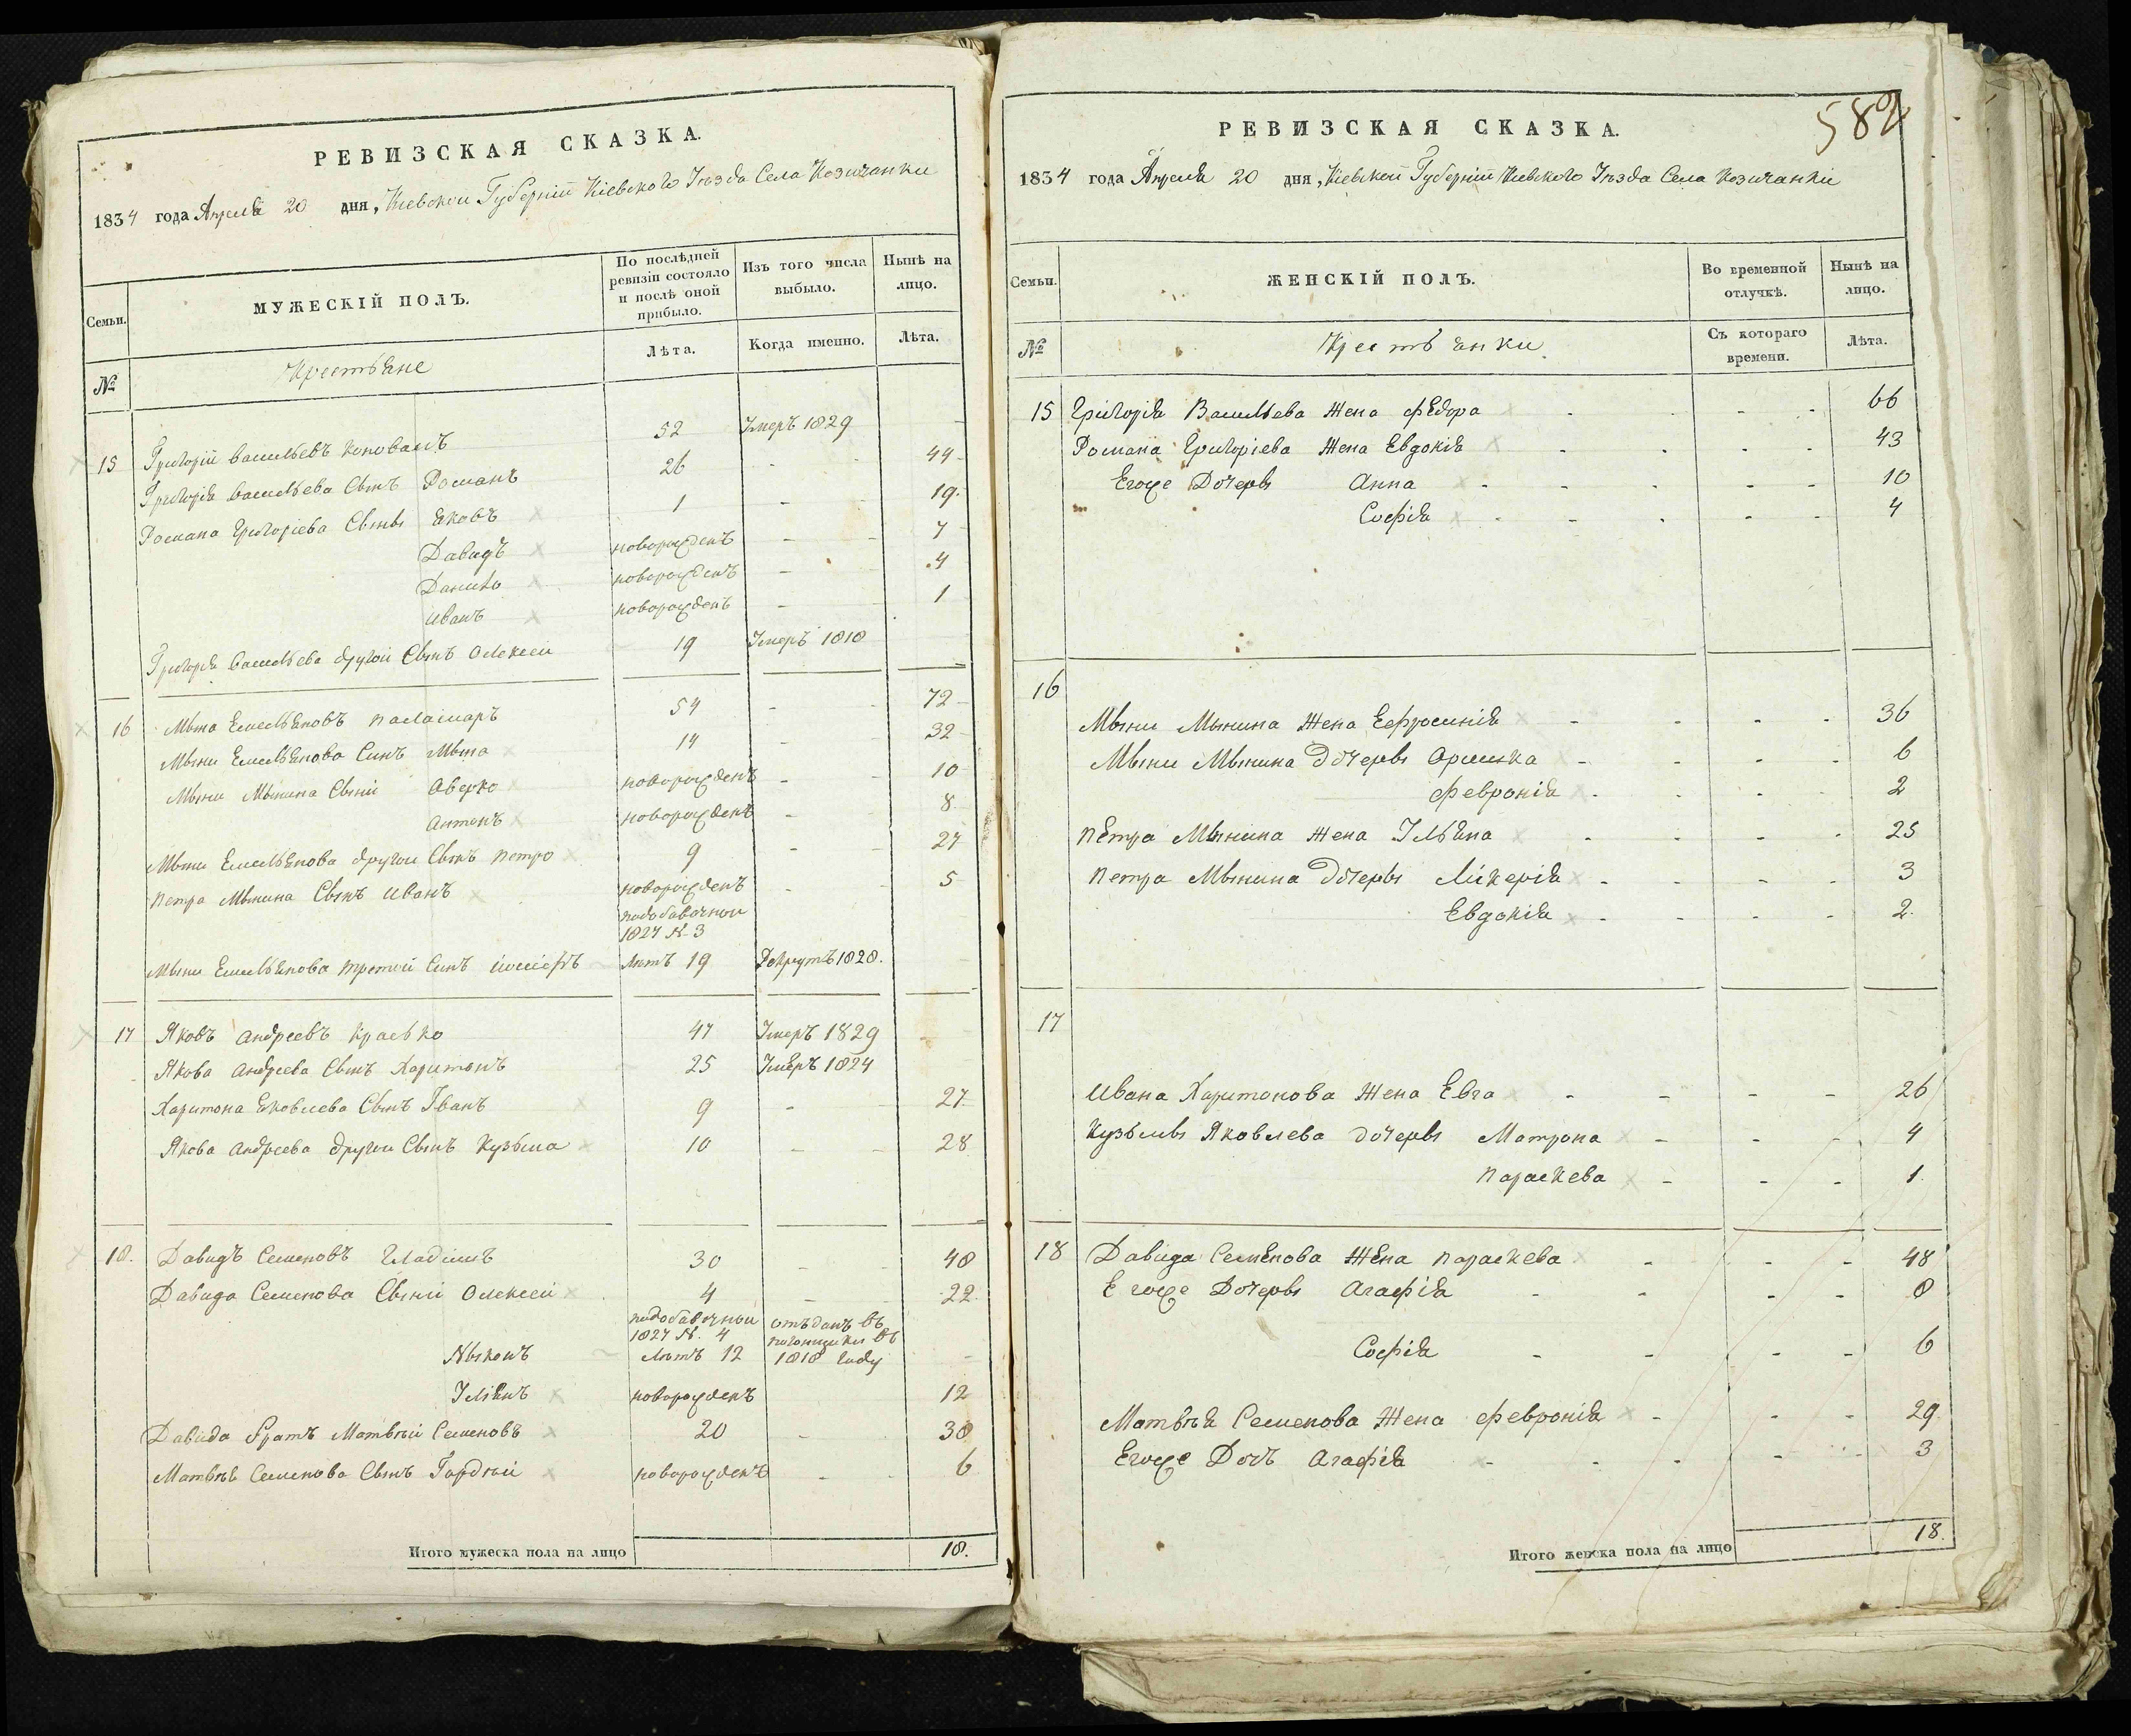 РЕВИЗСКАЯ СКАЗКА.
1834 года Апреля 20 дня, Кіевской Губерніи Кіевского Уѣзда Села Козичанки
Семьи. МУЖЕСКІЙ ПОЛЪ. По послѣдней ревизіи состояло и послѣ оной прибыло. Изъ того числа выбыло. Нынѣ на лицо.
№ Крестьяне Лѣта. Когда именно. Лѣта.
15 Григорій Васильевъ Коновалъ 52 Умеръ 1829
Григорія Васильева Сынъ Романъ 26 - - 44
Романа Григоріева Сыны Яковъ 1 - 19
Давидъ новорожденъ - - 7
Данило новорожденъ - 4
Иванъ новорожденъ - 1
Григорія Васильева другой Сынъ Олексей 19 Умеръ 1818
16 Мына Емельяновъ Паламаръ 54 - - 72
Мыны Емельянова Сынъ Мына 14 - 32
Мыны Мынина Сыны Аверко новорожденъ - - 10
Антонъ новорожденъ - 8
Мыны Емельянова другой Сынъ Петро 9 - - 27
Петра Мынина Сынъ Иванъ новорожденъ - - 5
подобавочной
1827 №. 3
Мыны Емельянова третій Сынъ Іосифъ Лѣтъ 19 Рекрутъ 1828.
17 Яковъ Андреевъ Краевко 47 Умеръ 1829
Якова Андреева Сынъ Харитонъ 25 Умеръ 1824
Харитона Яковлева Сынъ Іванъ 9 - - 27
Якова Андреева другой Сынъ Кузьма 10 - - 28
18. Давидъ Семеновъ 30 - - 48
Давида Семенова Сыны Олексей 4 - - 22
подобавочной отъданъ въ
1827 №. 4 погонщики въ
Ныконъ Лѣтъ 12 1818 году
Ульянъ новорожденъ 12
Давида братъ Матвѣй Семеновъ 20 - 38
Матвѣя Семенова Сынъ Гордѣй новорожденъ - - 6
Итого мужеска пола на лицо 18.
РЕВИЗСКАЯ СКАЗКА.
1834 года Апреля 20 дня, Кіевской Губерніи Кіевского Уѣзда Села Козичанки
Семьи. ЖЕНСКІЙ ПОЛЪ. Во временной отлучкѣ. Нынѣ на лицо.
№ Крестьянки Съ котораго времени. Лѣта.
15 Григорія Васильева Жена Федора - - - 66
Романа Григоріева Жена Евдокія - - - - 43
Егоже Дочеры Анна - - - - - 10
Софія - - - - - 4
16
Мыны Мынина Жена Ефросинія - - - - 36
Мыны Мынина Дочеры Оришка - - - - 6
Февронія - - - - 2
Петра Мынина Жена Ульяна - - - - 25
Петра Мынина Дочеры Ликерія - - - - 3
Евдокія - - - - 2
17
Ивана Харитонова Жена Евга - - - - 26
Кузьмы Яковлева дочеры Матрона - - - 4
Параскева - - - 1
18 Давида Семенова Жена Параскева - - - 48
Егоже Дочеры Агафія - - - - 8
Софія - - - - 6
Матвѣя Семенова Жена Февронія - - - 29
Егоже Дочъ Агафія - - - - - 3
Итого женска пола на лицо 18.